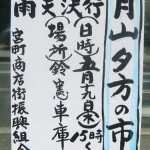 月山夕方の市
(日時)五月十九日(木)15時〜
(場所)鈴憲車庫
雨天決行
宮町商店街振興組合